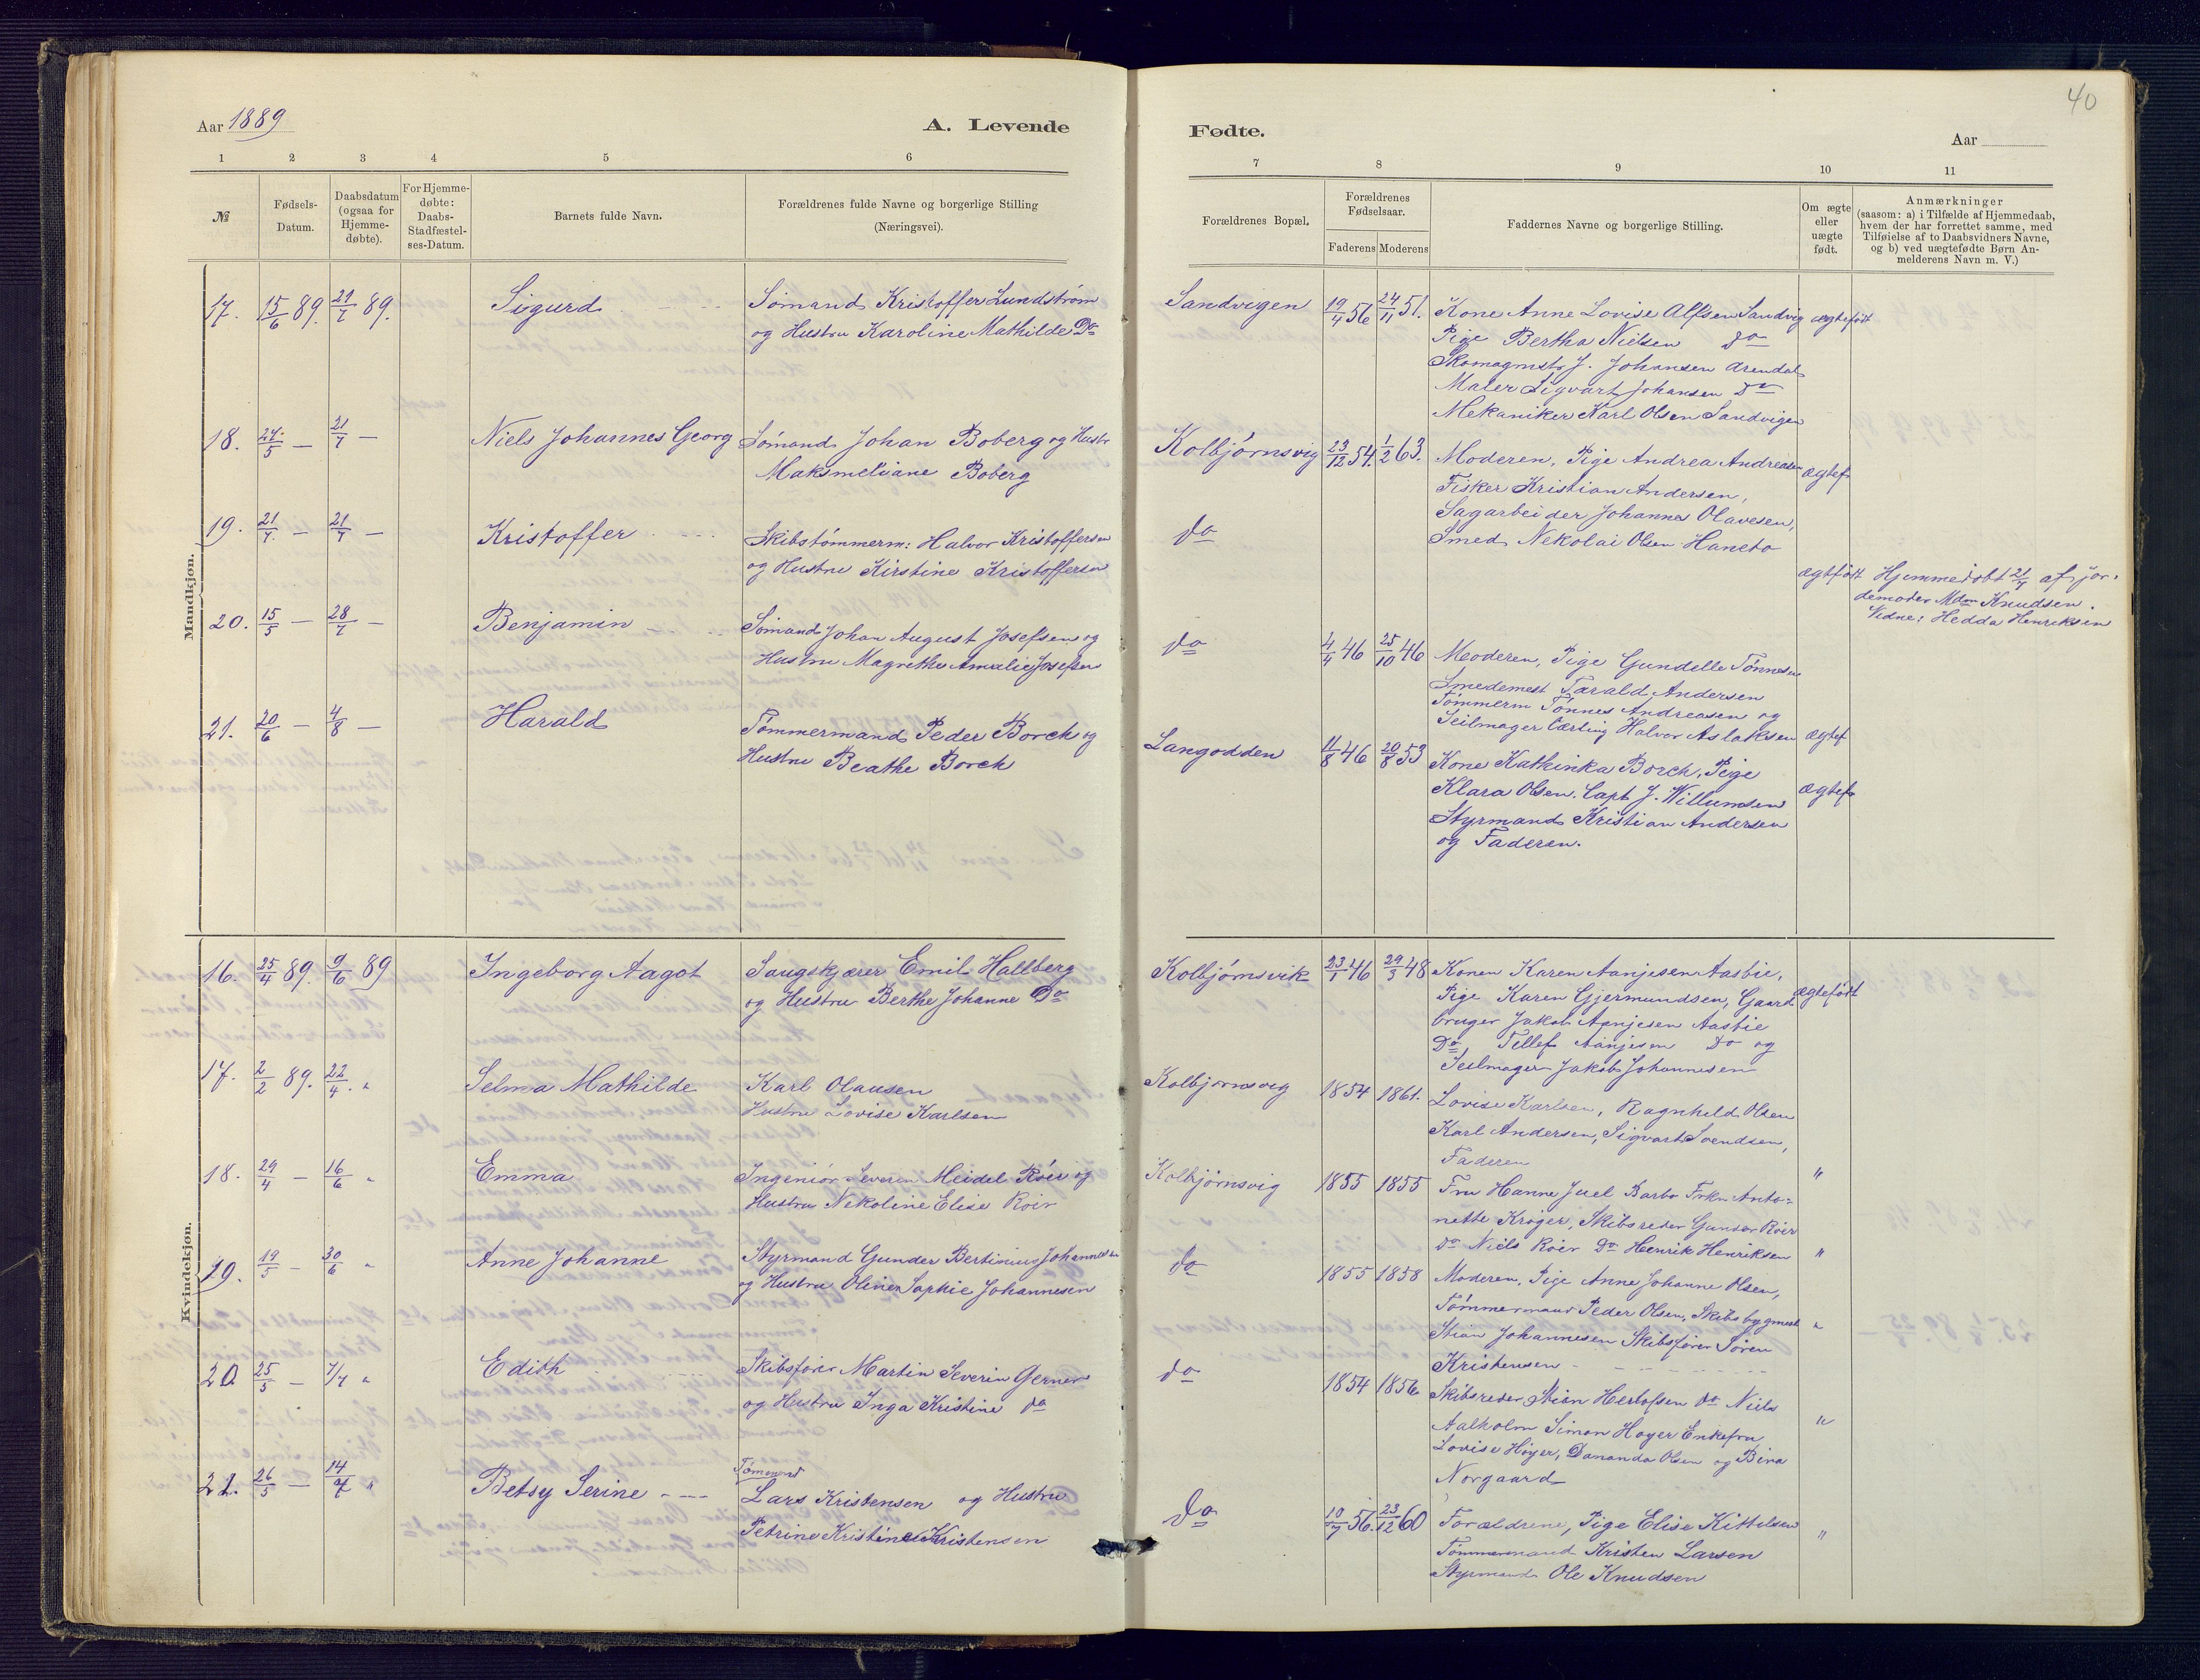 40
Aar 1889
A. Levende
Fødte.
Aar
1 2 3 4 5 6
7 8 9 10 11
№
Fødsels-
Datum.
Daabsdatum
(ogsaa for
Hjemme-
døbte).
For Hjemme-
døbte:
Daabs-
Stadfæstel-
ses-Datum.
Barnets fulde Navn.
Forældrenes fulde Navne og borgerlige Stilling
(Næringsvei).
Forældrenes Bopæl.
Forældrenes
Fødselsaar.
Faderens Moderens
Faddernes Navne og borgerlige Stilling.
Om ægte
eller
uægte
født.
Anmærkninger
(saasom: a) i Tilfælde af Hjemmedaab,
hvem der har forrettet samme, med
Tilføielse af to Daabsvidners Navne,
og b) ved uægtefødte Børn An-
melderens Navn m. V.)
Mandkjøn.
17. 15/6 89. 21/7 89. Sigurd
Sømand Kristoffer Lundstrøm
og Hustru Karoline Mathilde Do
Sandvigen 19/4 56 24/11 51.
Kone Anne Lovise Alfsen Sandvig ægtefødt
Pige Bertha Nielsen do
Skomagmstr J. Johansen Arendal
Maler Sigvart Johansen Do
Mekaniker Karl Olsen Sandvigen
18. 24/5 — 21/7 — Niels Johannes Georg
Sømand Johan Boberg og Hustr
Maksmeliane Boberg
Kolbjørnsvig 23/12 54. 1/2 63.
Moderen, Pige Andrea Andreasen ægtef
Fisker Kristian Andersen,
Sagarbeider Johannes Olavesen,
Smed Nekolai Olsen Haneto
19. 21/7 — 21/7 — Kristoffer
Skibstømmerm: Halvor Kristoffersen
og Hustru Kirstine Kristoffersen
do
ægtfødt Hjemmedøbt 21/7 af jor-
demoder Mdm Knudsen.
Vidne: Hedda Henriksen
20. 15/5 — 28/7 — Benjamin
Sømand Johan August Josefsen og
Hustru Magrethe Amalie Josefsen
do 4/4 46 25/10 46
Moderen, Pige Gundelle Tønnesen
Smedemest Tarald Andersen
Tømmerm Tønnes Andreasen og
Seilmager Halvor Aslaksen ægtef
21. 20/6 — 4/8 — Harald
Tømmermand Peder Borch og
Hustru Beathe Borch
Langodden 11/8 46 20/8 53
Kone Kathinka Borch, Pige
Klara Olsen. Capt J. Willumsen ægtef
Styrmand Kristian Andersen
og Faderen.
Kvindekjøn.
16. 25/4 89. 9/6 89 Ingeborg Aagot
Saugskjærer Emil Hallberg
og Hustru Berthe Johanne Do
Kolbjørnsvik 23/1 46 29/3 48
Konen Karen Aanjesen Aasbie,
Pige Karen Gjermundsen, Gaard ægtefødt
bruger Jakob Aanjesen Aasbie
Do Tellef Aanjesen Do og
Seilmager Jakob Johannesen
17. 2/2 89. 22/4. " Selma Mathilde
Karl Olausen
Hustru Lovise Karlsen
Kolbjørnsvig 1854 1861.
Lovise Karlsen, Ragnhild Olsen
Karl Andersen, Sigvart Svendsen,
Faderen "
18. 29/4 — 16/6 " Emma
Ingeniør Severin Meidel Röer og
Hustru Nekoline Elise Roer
Kolbjørnsvig 1855 1855
Fru Hanne Juel Barbo Frkn Anto-
nette Krøger, Skibsreder Gunder Röer
do Niels Roer Do Henrik Henriksen "
19. 19/5 — 30/6 " Anne Johanne
Styrmand Gunder Bertinius Johannesen
og Hustru Oline Sophie Johannesen
do 1855 1858
Moderen, Pige Anne Johanne Olsen,
Tømmermand Peder Olsen, Skibsbygmest "
Stian Johannesen Skibsfører Søren
Kristensen
20. 25/5 — 7/7 " Edith
Skibsfører Martin Severin Gerner
og Hustru Inga Kristine do
do 1854 1856
Skibsreder Stian Herlofsen do Niels
Aalholm Simon Høyer Enkefru "
Lovise Høyer, Dananda Olsen og Bina
Norgaard
21. 26/5 — 14/7 " Betsy Serine
Tømmerd
Lars Kristensen og Hustru
Petrine Kristine Kristensen
do 10/7 56. 23/12 60
Forældrene, Pige Elise Kittelsen
Tømmermand Kristen Larsen "
Styrmand Ole Knudsen